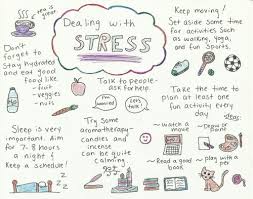 tea is great
Dealing with
STRESS
Don't
forget to
stay hydrated
and eat good
food like
- fruit
- veggies
- nuts
Keep moving!
Set aside some time
for activities such
as walking, yoga,
and fun sports.
Talk to people-
ask for help.
I'm worried
Let's talk
Take the time to
plan at least one
fun activity every
day
Sleep is very
important. Aim
for 7-8 hours
a night!
Keep a schedule!
Try some
aromatherapy-
candles and
incense
can be quite
calming
ideas:
~ watch a
movie
~ Draw or
paint
~ Read a good
book
~ play with a
pet